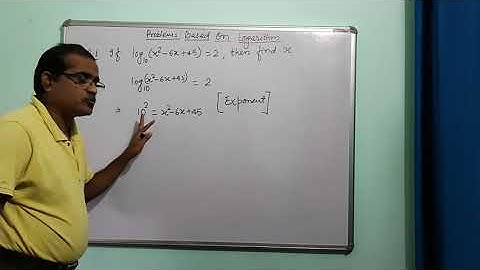 Problems Based On Logarithm
If log₁₀(x²-6x+45) = 2, then find x
log₁₀(x²-6x+45) = 2
⇒ 10² = x²-6x+45 [Exponent]